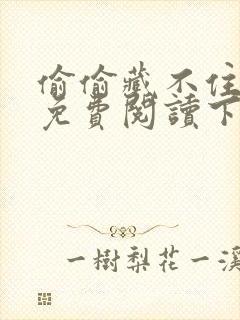 偷偷藏不住
免費閱讀下
一樹梨花一溪